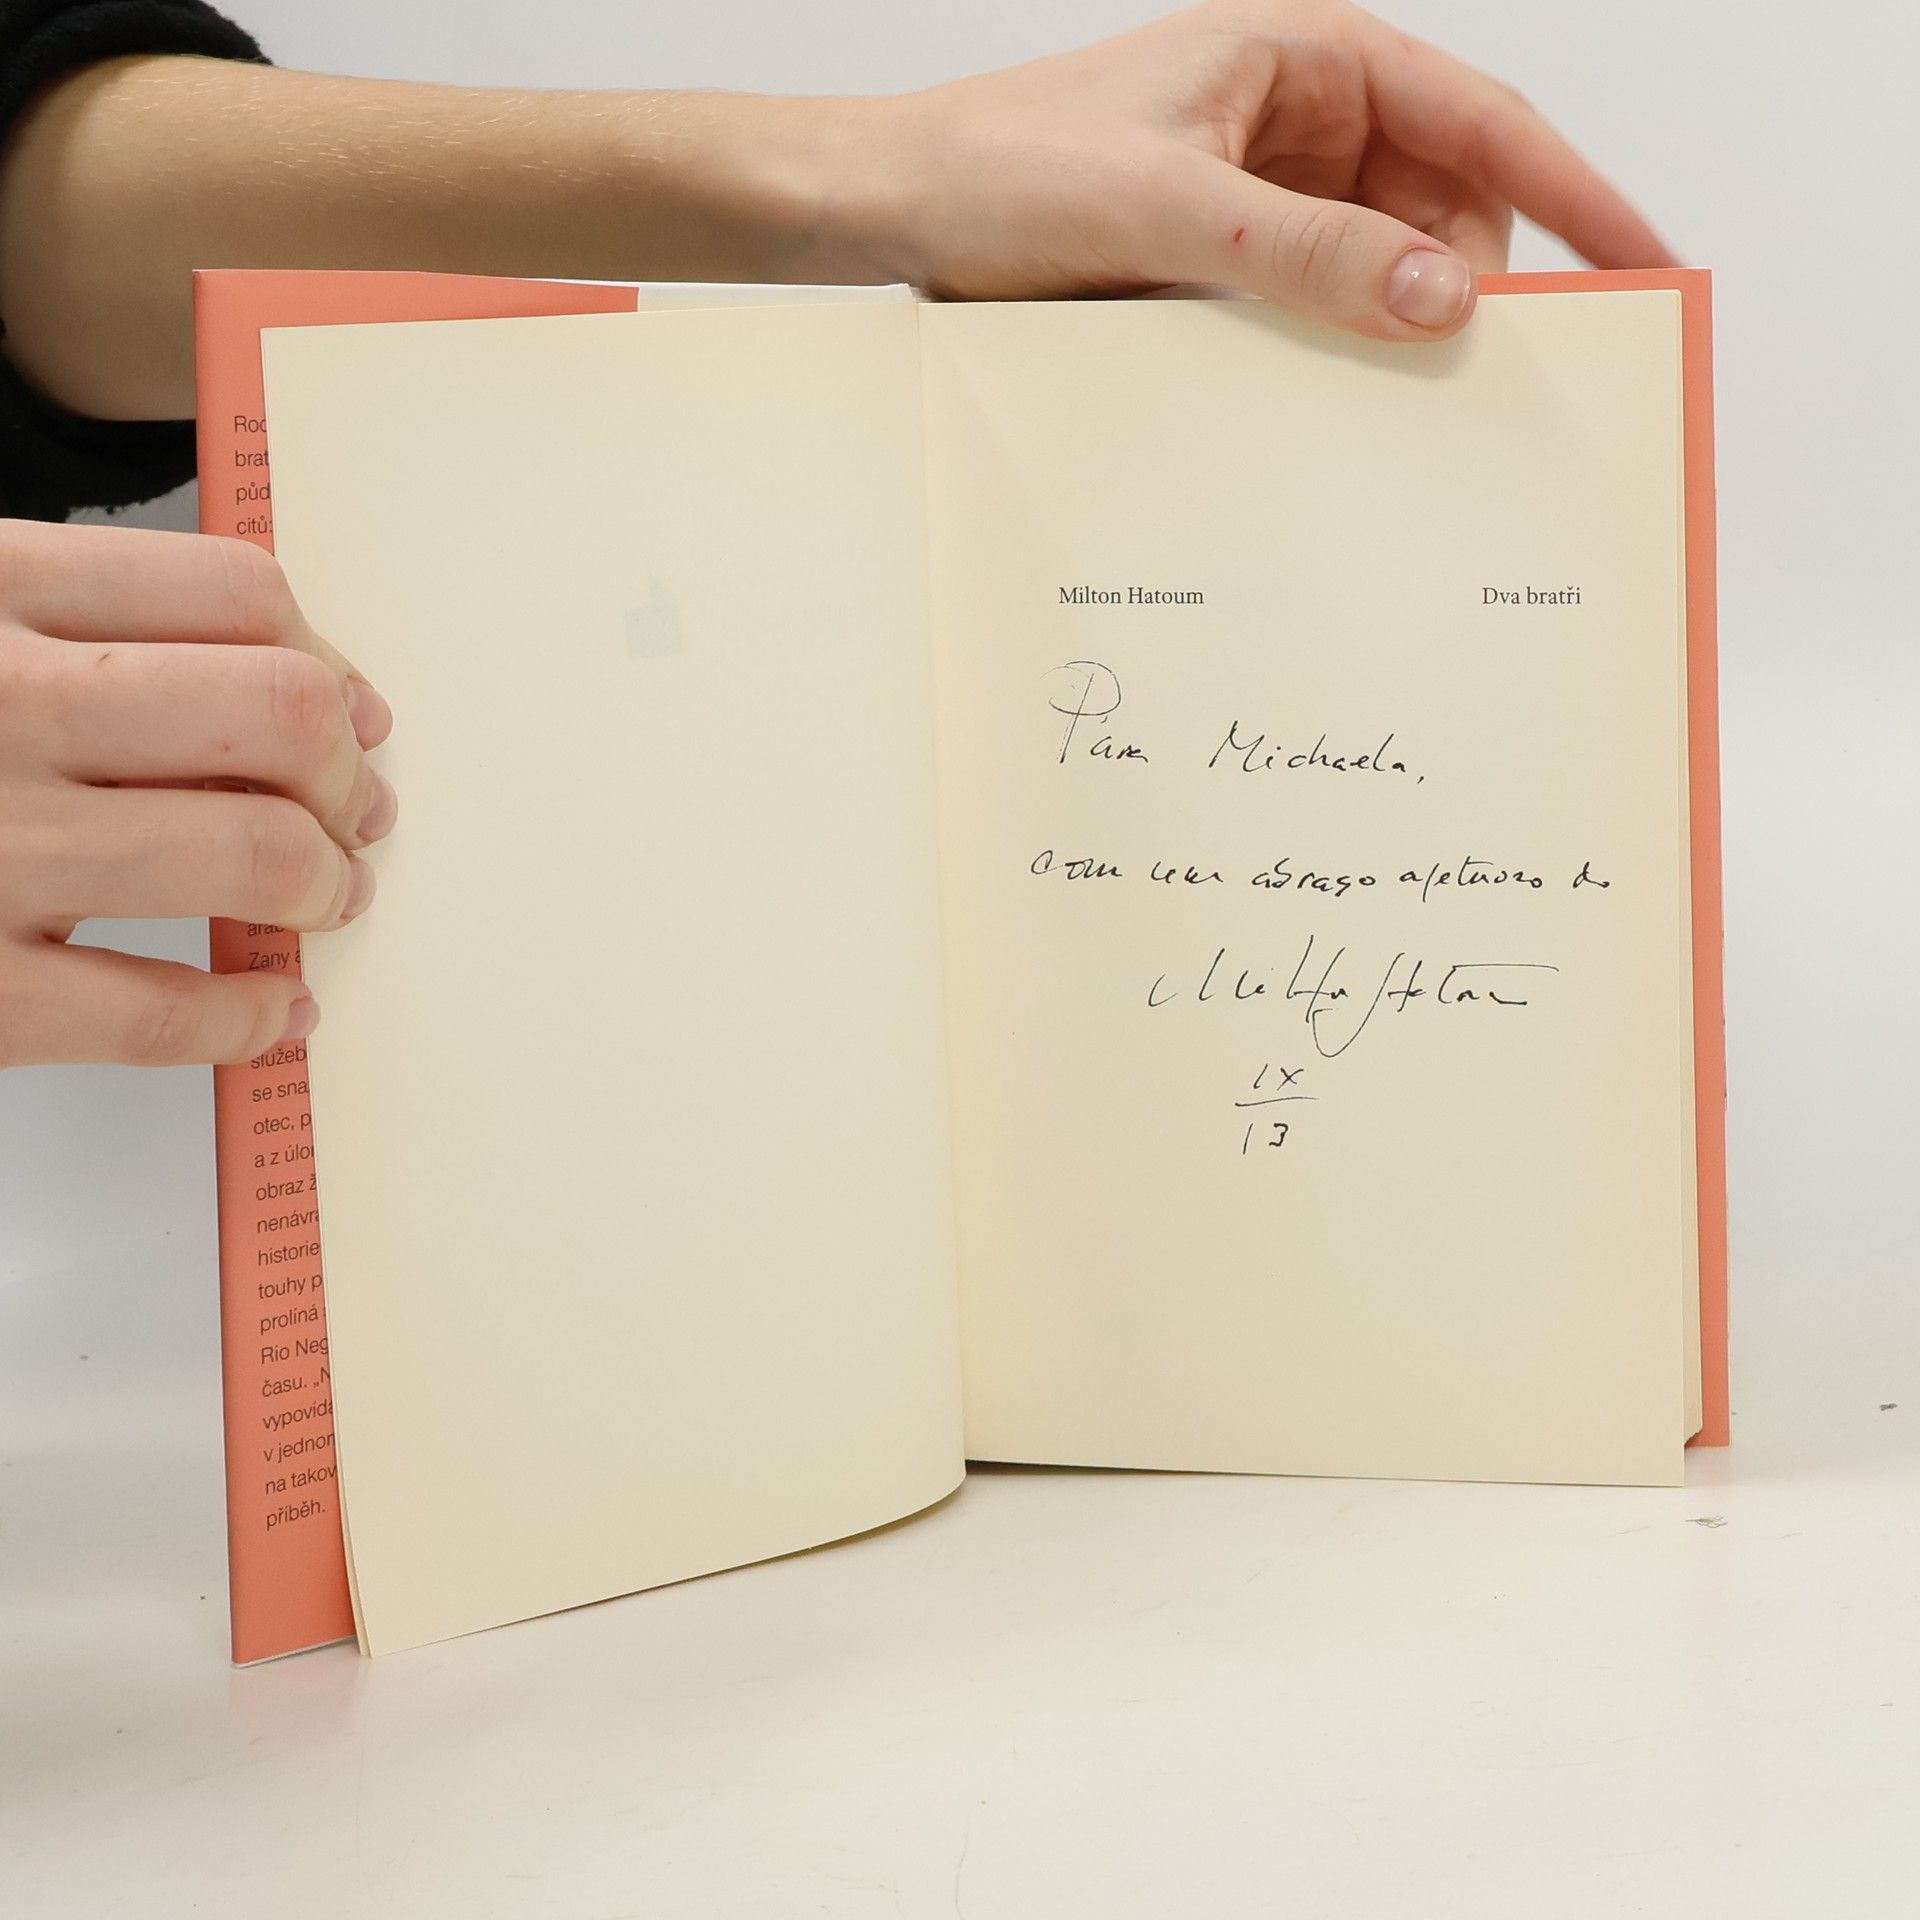 Roc
brat
půd
citů:
arab
Zany a
služeb
se sna
otec, p
a z úlo
obraz ž
nenávra
historie
touhy p
prolíná
Rio Neg
času. „N
vypovída
v jednom
na takov
příběh.
Milton Hatoum Dva bratři
Para Michaela,
com um abraço afetuoso do
Milton Hatoum
IX
13